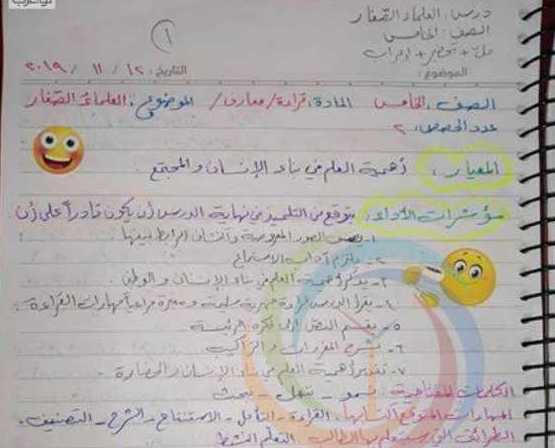 درس: العلماء الصغار
الصف: الخامس
حل + تحضير + إثراءات
①
الموضوع: التاريخ: ١٢ / ١١ / ٢٠١٩
الصف: الخامس المادة: قراءة/ معارف/ الموضوع: العلماء الصغار
عدد الحصص: ٢
المعيار: أهمية العلم في بناء الإنسان والمجتمع.
مؤشرات الأداء: يتوقع من التلميذ في نهاية الدرس أن يكون قادراً على أن
١- يصف الصور المعروضة واكتشاف الرابط بينها
٢- يلتزم آداب الاستماع
٣- يذكر أهمية العلم في بناء الإنسان والوطن.
٤- يقرأ الدرس قراءة جهرية سليمة ومعبرة مراعياً مهارات القراءة.
٥- يقسم النص إلى فكره الرئيسة
٦- يشرح المفردات والتراكيب
٧- تقدير أهمية العلم في بناء الإنسان والحضارة.
الكلمات المفتاحية: نسمو - ننهل - نبحث
المهارات المتوقع اكتسابها: القراءة - التأمل - الاستنتاج - الشرح - التصنيف.
الطرائق التي سيتعلم بها الطالب التعلم النشط